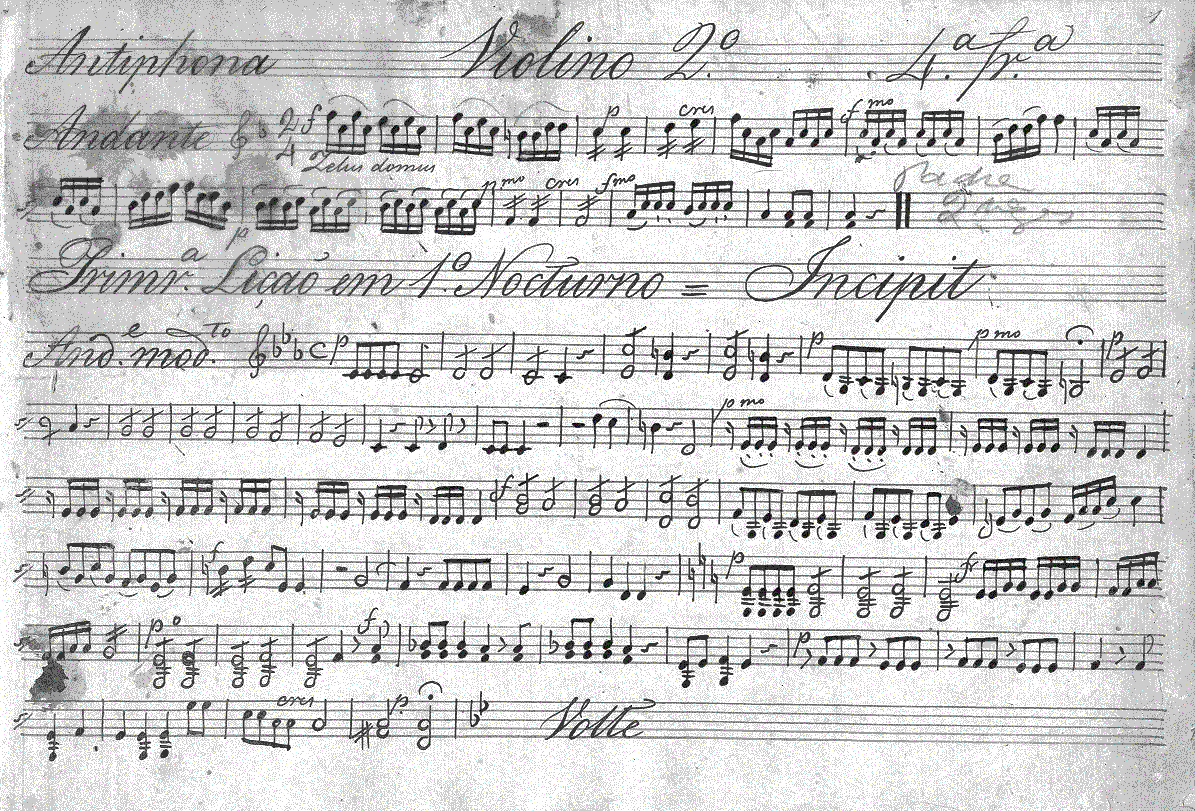 Antiphona Violino 2.º 4.ª fr.ª 1
Andante 2 4 f p cres f mo
Zelus domus
p mo cres f mo Padre
p
Primr.ª Licaõ em 1.º Nocturno = Incipit
And.e mod.to C p p p mo p
p mo
f
f p f
p o f p
cres p Volte